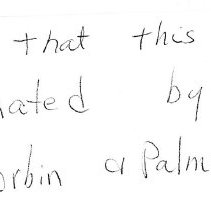 that this
nated by
orbin or Palm